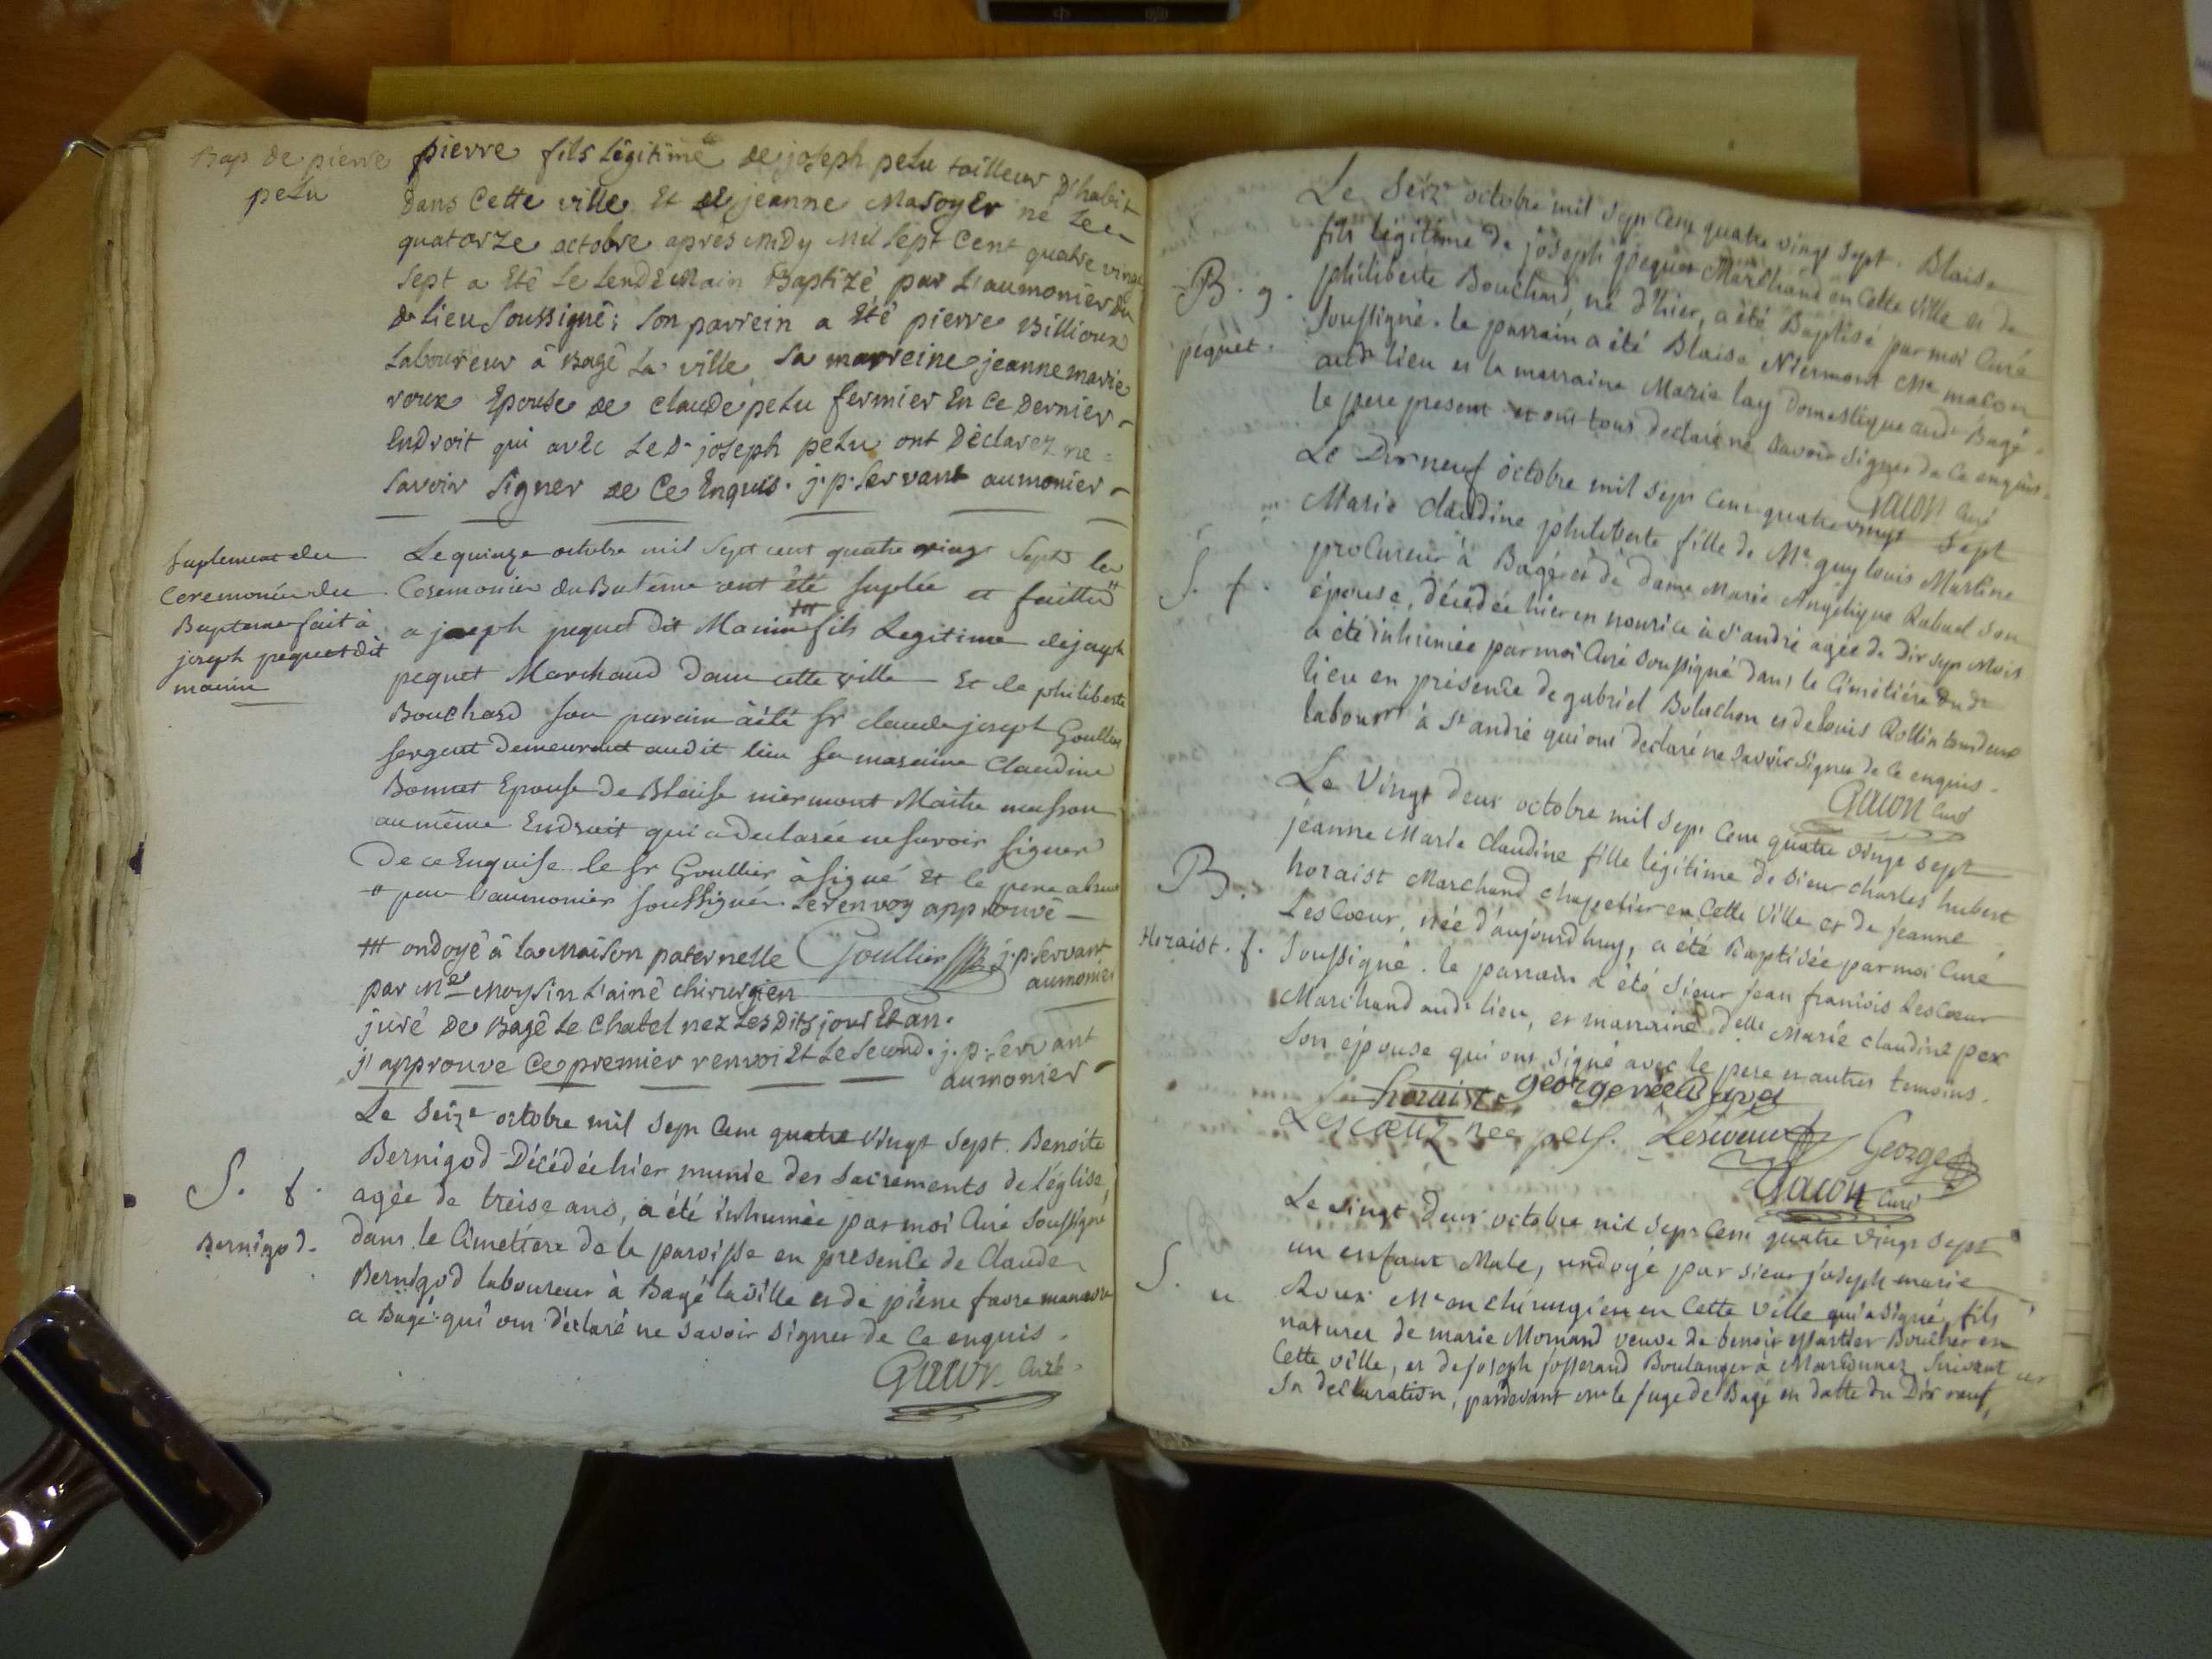 Bap de pierre
pelu
pierre fils Légitime de joseph pelu tailleur d'habit
dans Cette ville Et de jeanne Masoyer né Le
quatorze octobre après midy mil sept Cent quatre vingt
sept a Eté Le Lendemain Baptizé par L'aumonier du
de Lieu soussigné; son parrein a Eté pierre Billioux
Laboureur à Bagé La ville sa marreine jeanne marie
roux Epouse de claude pelu fermier En Ce Dernier
Endroit qui avec Le Dt joseph pelu ont Déclarez ne
savoir signer de Ce Enquis. j. p. servant aumonier
Suplement des
Ceremonies du
Bapteme fait à
joseph pequet dit
manin
Le quinze octobre mil sept cent quatre vingt sept les
Ceremonies du Batême ont été suplée et faitte #
a joseph pequet dit Manin ### fils Legitime de joseph
pequet Marchand dans cette ville Et de philiberte
Bouchard son parain a été sr claude joseph Goullier
sergent demeurant audit lieu sa maraine Claudine
Bonnet Epouse de Blaise niermont Maitre masson
au même Endroit qui a declarée ne savoir signer
De ce Enquise le sr Goullier à signé Et le pere absent
# par l'aumonier soussigné. Le renvoy approuvé
### ondoyé à la maison paternelle Goullier j. p. servant
aumonier
par Me Moysin L'ainé chirurgien
juré de Bagé Le Chatel nez Les Dits jour Et an.
j'approuve Ce premier renvoi Et Le second. j. p. servant
aumonier
S. f.
Bernigod.
Le seize octobre mil sept Cent quatre vingt sept. Benoite
Bernigod Décédée hier munie des sacrements de l'église,
agée de treise ans, a été inhumée par moi Curé soussigné
dans le Cimetiere de la paroisse en presence de Claude
Bernigod laboureur à Bagé la ville et de piérre favre manœuvre
a Bagé qui ont déclaré ne savoir signer de Ce enquis.
Gacon Curé
B. g.
péquet.
Le seize octobre mil sept Cent quatre vingt sept. Blaise
fils légitime de joseph pequet Marchand en Cette Ville et de
philiberte Bouchard, né d'hier, a été Baptisé par moi Curé
soussigné. le parrain a été Blaise Niermont Me maçon
audt lieu et la marraine Marie lay Domestique audt Bagé.
le pere present et ont tous declaré ne savoir signer de Ce enquis.
Gacon Curé
S. f.
Le Dix neuf octobre mil sept Cent quatre vingt sept
Marie Claudine philiberte fille de Me guy louis Martine
procureur à Bagé et de dame Marie Angélique Rabuel son
épouse, décédée hier en nourice à St andré agée de Dix sept Mois
a été inhumée par moi Curé soussigné dans le Cimétiére dudt
lieu en présence de gabriel Boluchon et de louis Rollin tous deux
labourrs à St andré qui ont declaré ne savoir signer de Ce enquis.
Gacon Curé
B.
Horaist. f.
Le Vingt deux octobre mil sept Cent quatre vingt sept
jeanne Marie Claudine fille légitime de sieur charles hubert
horaist Marchand chapelier en Cette Ville et de jeanne
Lescœur, née d'aujourdhuy, a été Baptisée par moi Curé
soussigné. le parrain a été sieur jean françois Lescœur
Marchand audt lieu, et marraine delle Marie claudine pex
son épouse qui ont signé avec le pere et autres temoins.
horaist george née
Lescœur née pex. Lescœur George
Gacon Curé
S.
Le vingt deux octobre mil sept Cent quatre vingt sept
un enfant Male, ondoyé par sieur joseph marie
Roux Me en chirurgien en Cette Ville qui a signé, fils
naturel de marie Mornand veuve de benoit Boucher en
Cette ville, et de joseph josserand Boulanger à suivant
sa declaration, pardevant Mr le juge de Bagé en datte du Dix neuf,